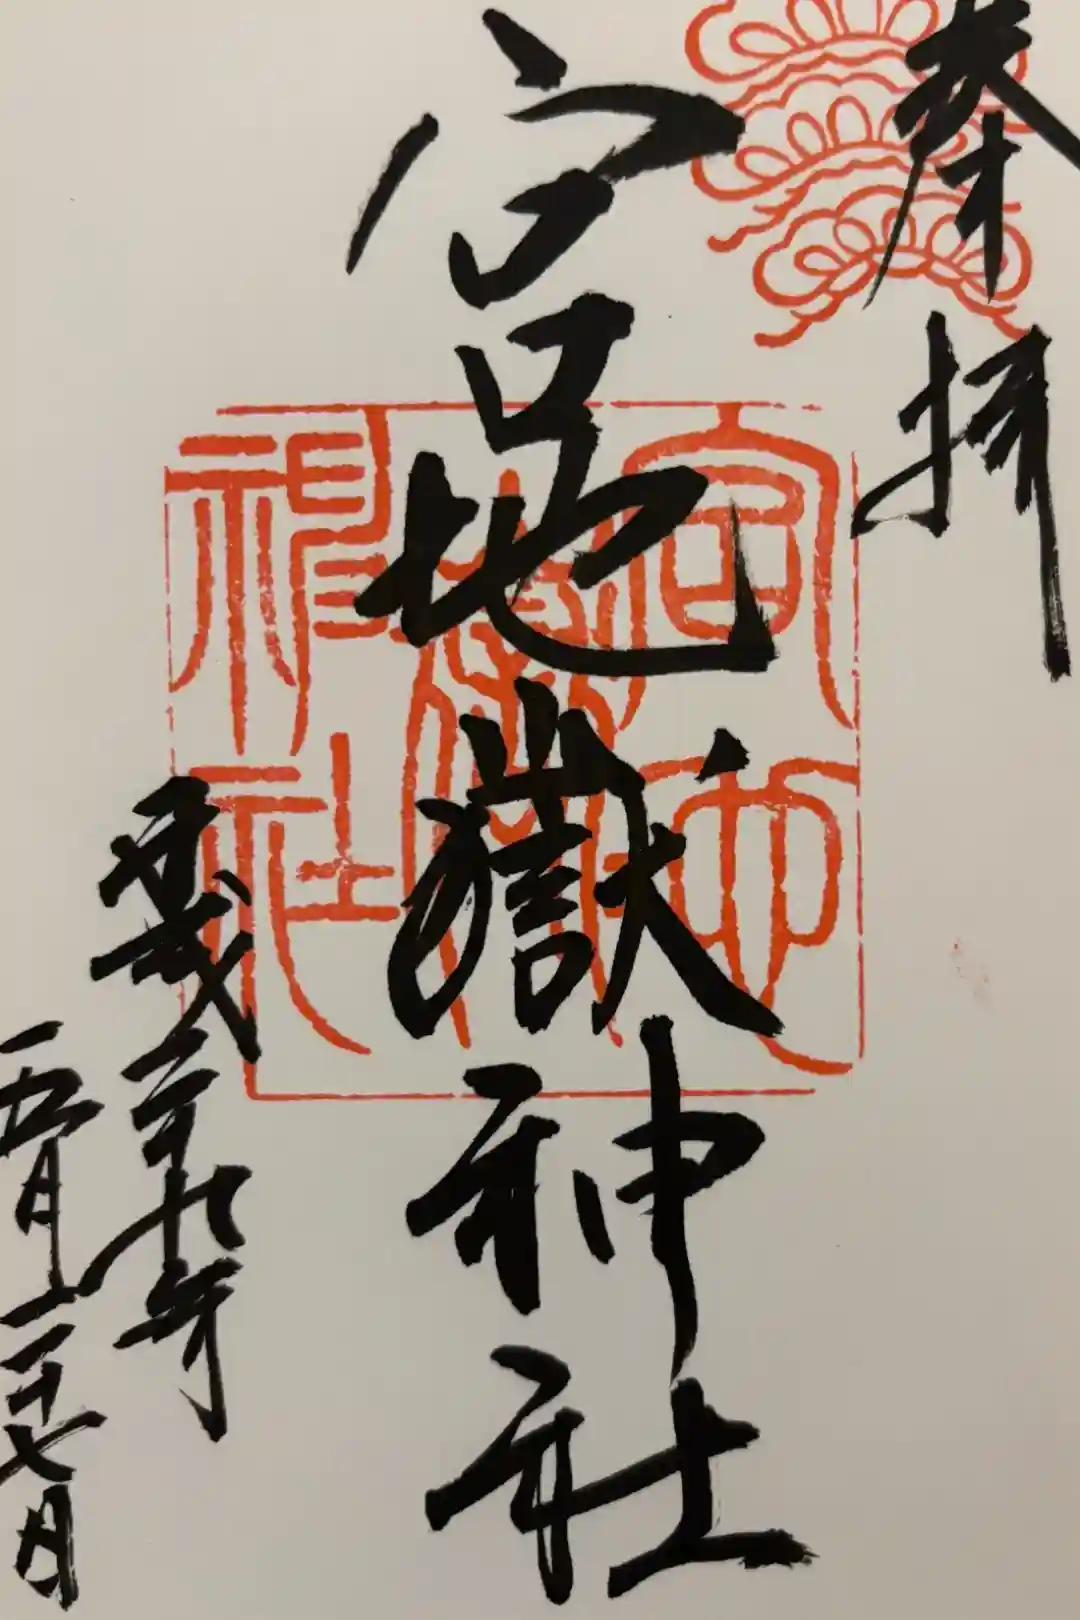 奉拝
宮地嶽神社
宮地
嶽
神社
平成二十九年
五月二十七日